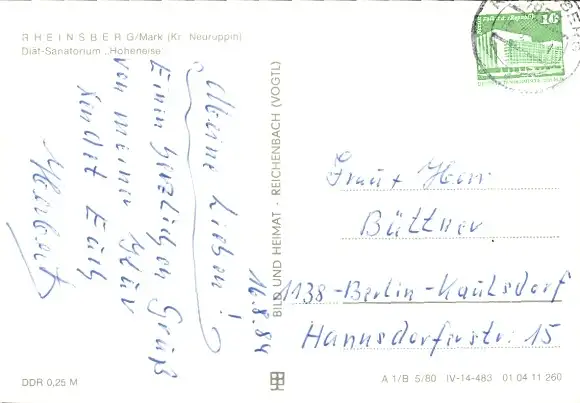 RHEINSBERG/Mark (Kr. Neuruppin)
Diät-Sanatorium „Hohenelse"
Meine Lieben!
Einen herzlichen Gruß
von meiner Kur
sendet Euch
Herbert
16.8.84
BILD UND HEIMAT · REICHENBACH (VOGTL)
10
Frau + Herr
Büttner
1138-Berlin-Kaulsdorf
Hannsdorferstr. 15
DDR 0,25 M
A 1/B 5/80 IV-14-483 01 04 11 260